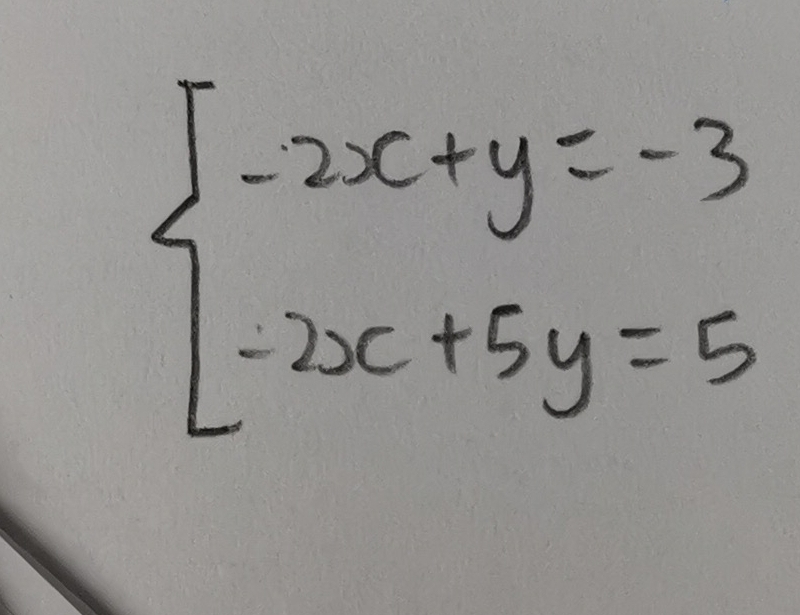 -2x+y=-3
-2x+5y=5